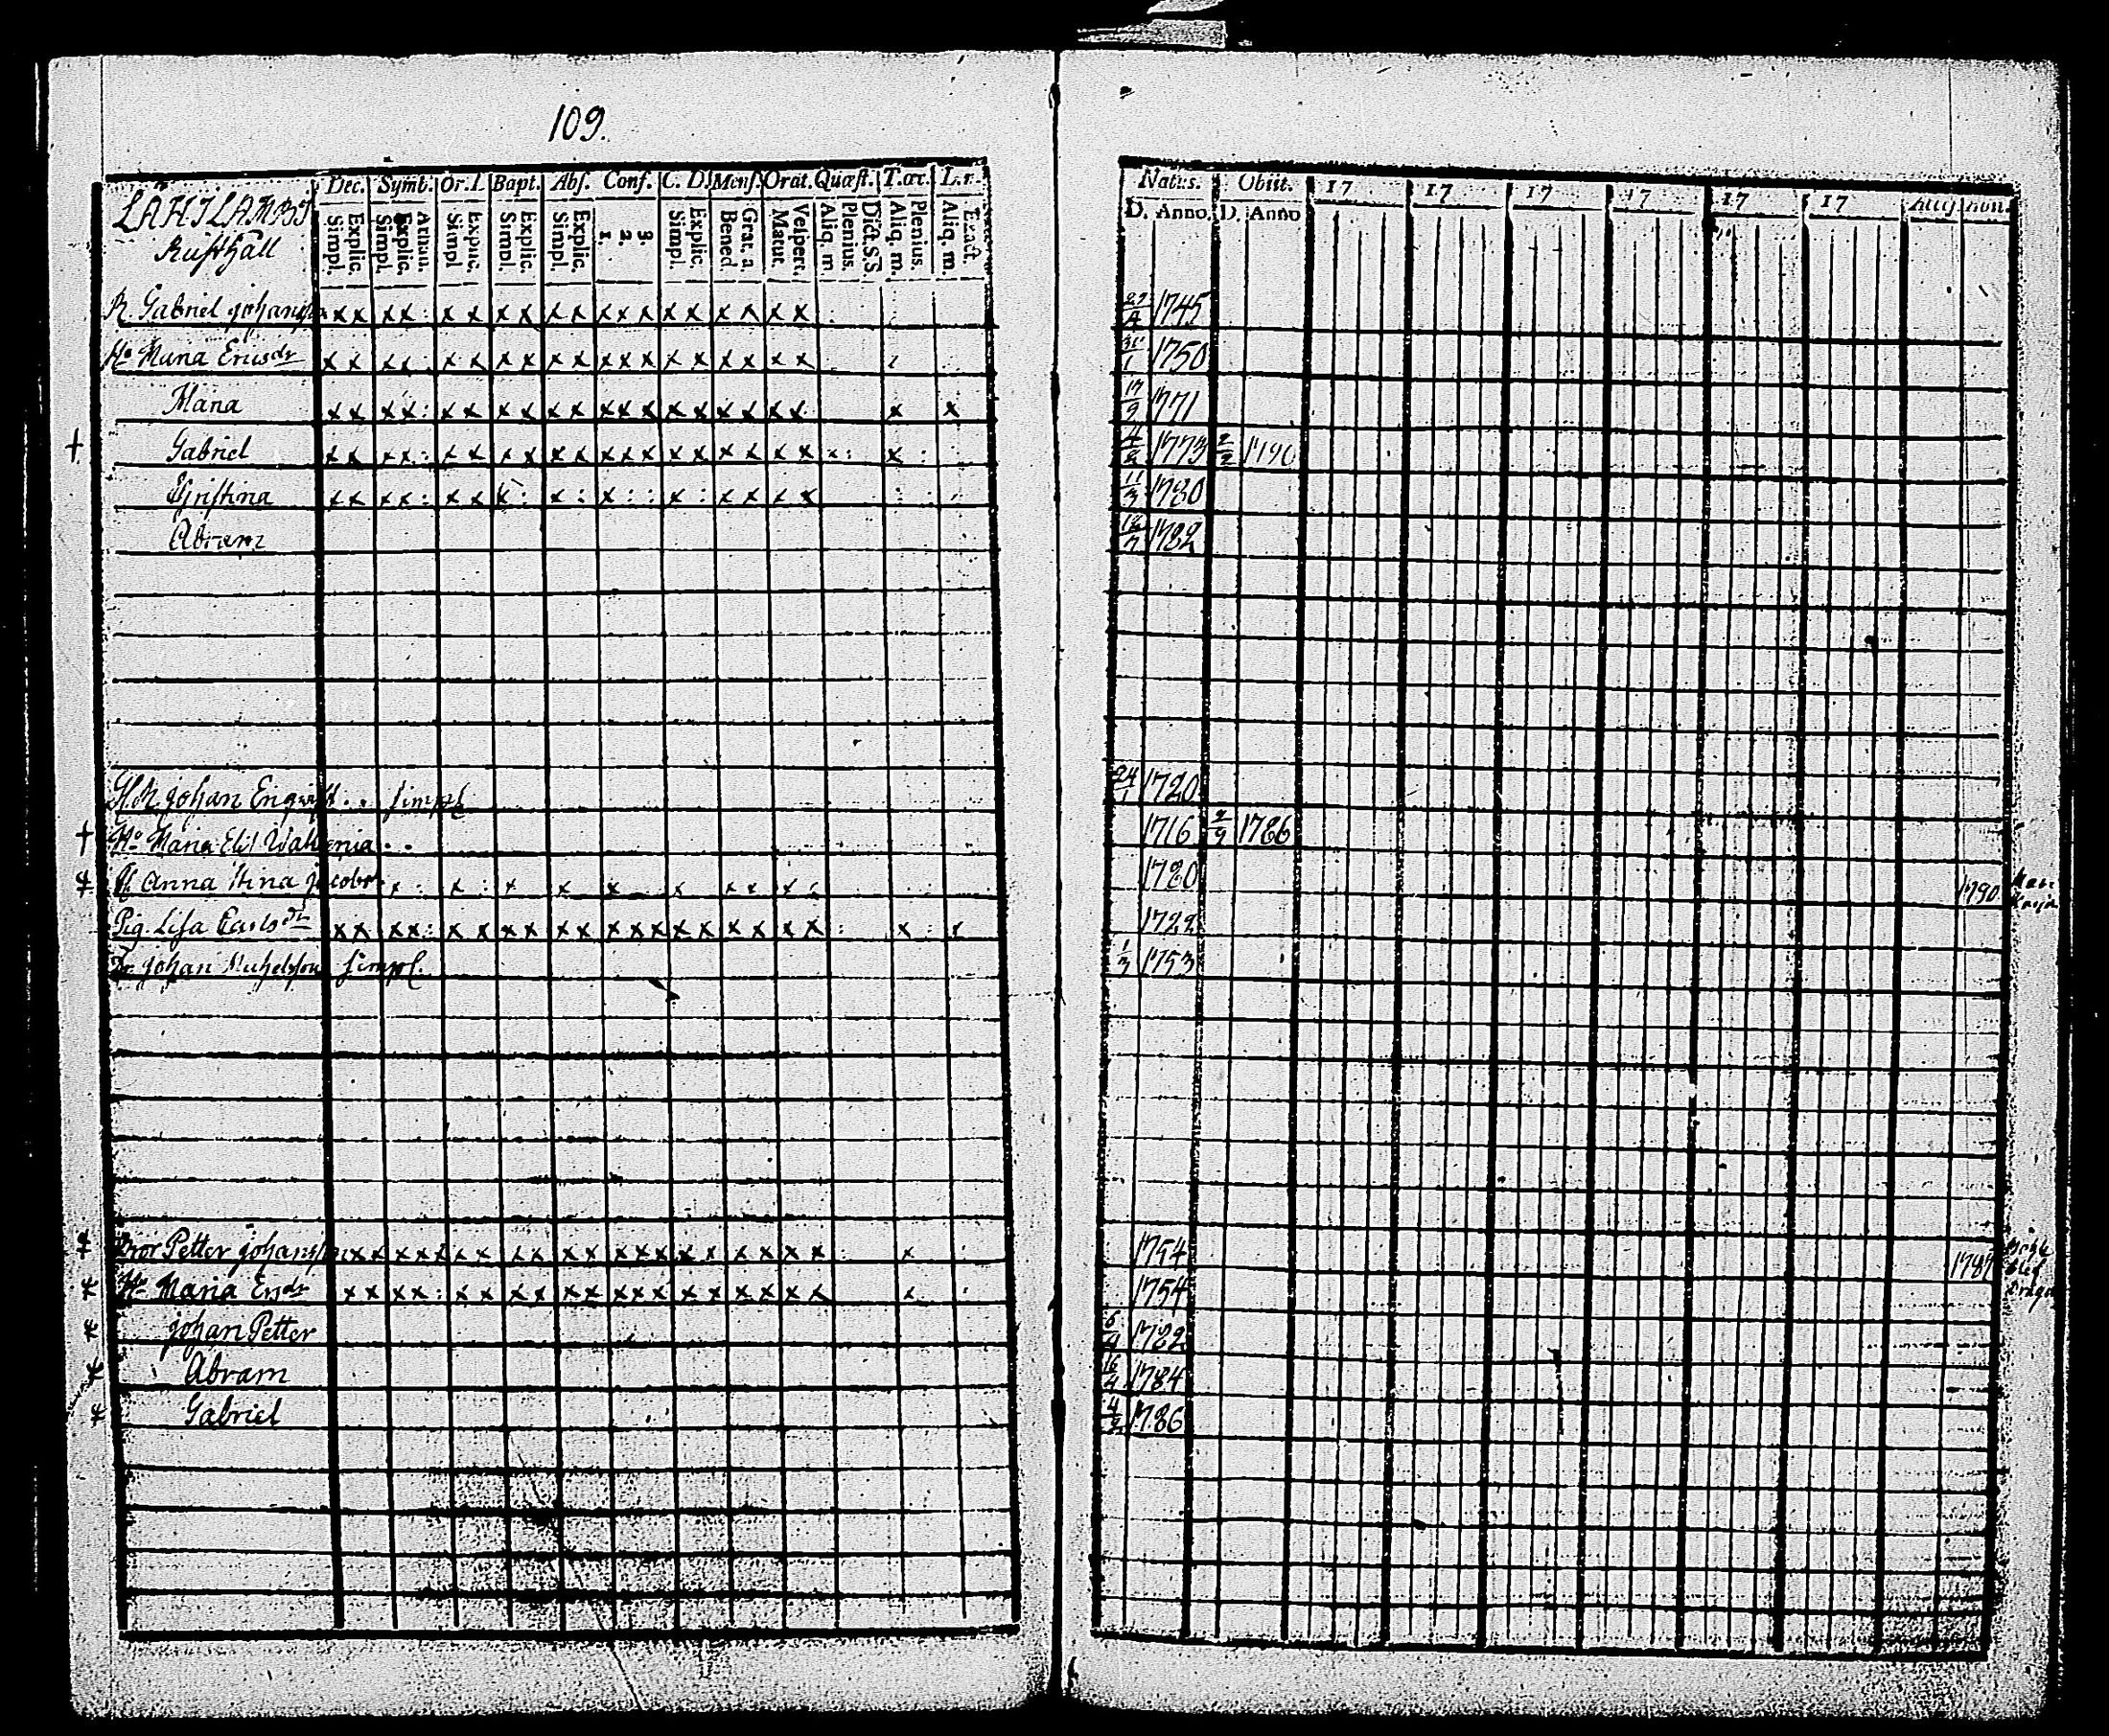 109.
Dec. Symb. Or. D. Bapt. Abs. Conf. C. D. Mens. Orat. Quæst. T. œc. L. r. Natus. Obiit. 17 17 17 17 17 17
LAHILAMBI
Rusthåll
Explic. Simpl. Athan. Explic. Simpl. Explic. Simpl. Explic. Simpl. Explic. Simpl. 3. 2. 1. Explic. Simpl. Grat. a. Bened. Vespert. Matut. Dict. SS. Plenius. Aliq. m. Plenius. Aliq. m. Exact. Aliq. m. D. Anno. D. Anno
R. Gabriel Johansson x x x x : x x x x x x x x x x x x x x x 1745
H:o Maria Ericsdr x x x x x x x x x x x x x x x x x x x 31/1 1750
Maria x x x x : x x x x x x x x x x x x x x x x x 17/9 1771
† Gabriel x x x x : x x x x x x x x x x x x x x x x : x : 1773 2/2 1790
Christina x x x x : x x x : x : x : : x : x x x x 11/3 1780
Abram 1782
Johan Engqvist . . simpl 24/1 1720
† H:o Maria Elis . . 1716 2/9 1786
Anna Stina Jacobs x : x : x x x x x x x 1720 1790
Pig. Lisa Carlsdr x x x x : x x x x x x x x x x x x x x x : x : x 1722
Dr. Johan Michelsson simpl. 1/3 1753
Bror Petter Johansson x x x x x x x x x x x x x x x x x x x x x 1754 1787
H:o Maria Ersdr x x x x : x x x x x x x x x x x x x x x x 1754
Johan Petter 6/4 1782
Abram 16/4 1784
Gabriel 1786